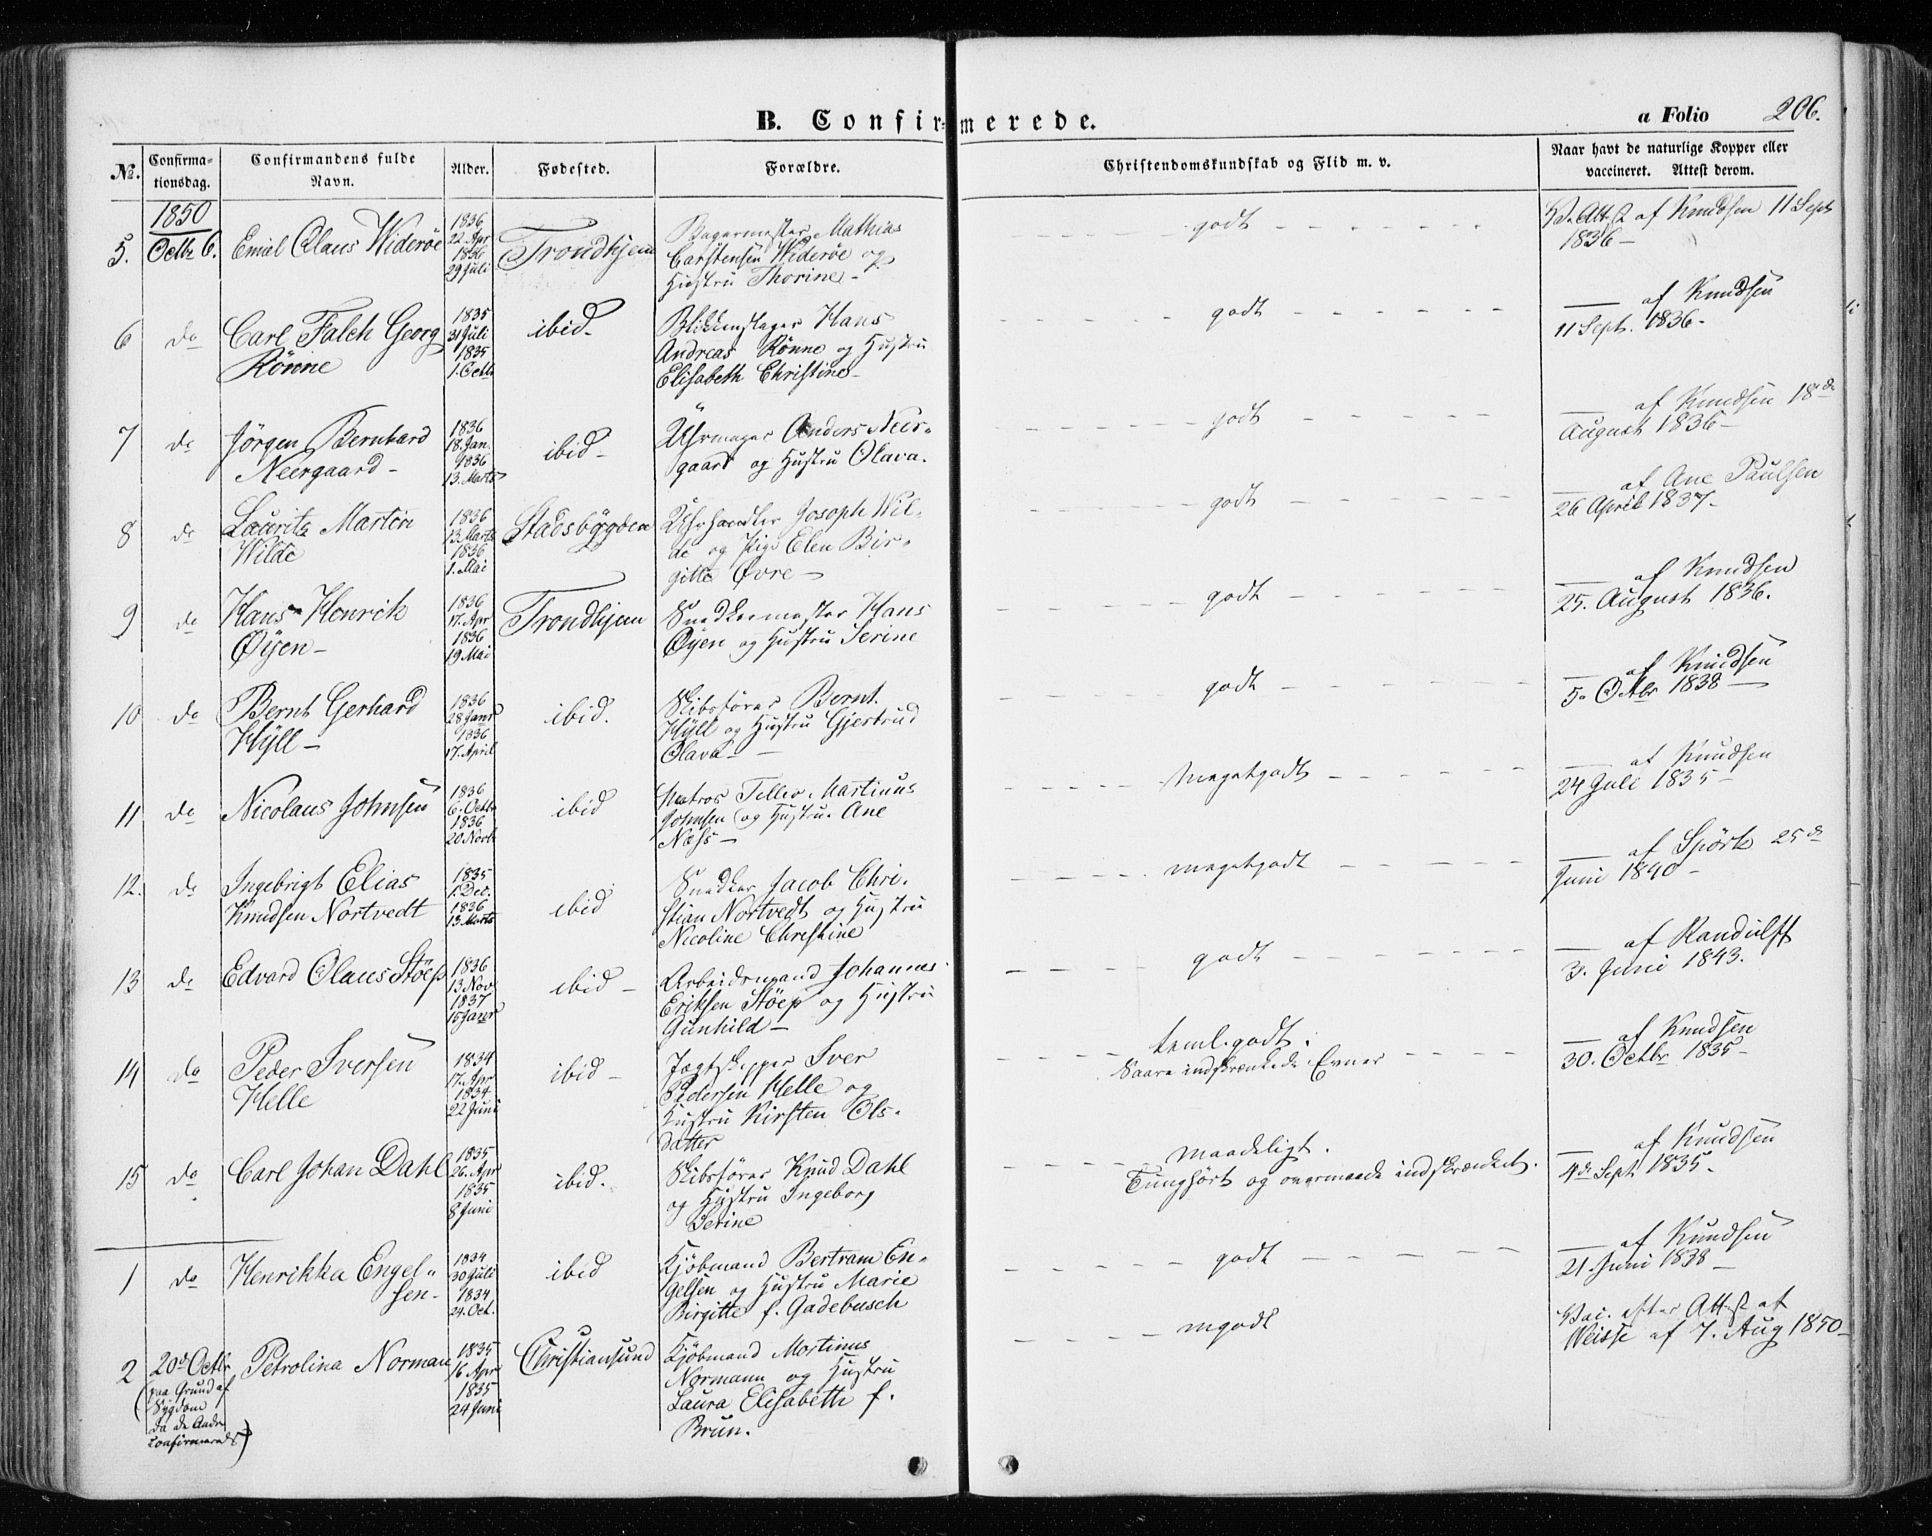 B. Confirmerede.
a Folio 206.
№.
Confirma-
tionsdag.
Confirmandens fulde
Navn.
Alder.
Fødested.
Forældre.
Christendomskundskab og Flid m. v.
Naar havt de naturlige Kopper eller
vaccineret. Attest derom.
1850
5. Octbr 6. Emiel Olaus Widerøe
1836
22. Apr
1836
29 Juli
Trondhjem
Bagermester Mathias
Carstensen Widerøe og
Hustru Thorine
godt
af Knudsen 11 Sept
1836
6 do Carl Falch Georg
Rønne
1835
31 Juli
1835
1. Octbr
ibid
Blikkenslager Hans
Andreas Rønne og Hustru
Elisabeth Christine
godt
af Knudsen
11 Sept. 1836.
7 do Jörgen Bernhard
Neergaard
1836
18. Jan.
1836
13. Marts
ibid
Uhrmager Anders Neer-
gaard og Hustru Olava.
godt
af Knudsen 18de
August 1836
8 do Lauritz Martin
Wilde
1836
13. Marts
1836
1. Mai
Stadsbygden
Uhrhandler Joseph Wil-
de og Pige Elen Bir-
gitte Øvre
godt
af Ane Paulsen
26 April 1837.
9 do Hans Henrik
Øyen
1836
17. Apr
1836
19 Mai
Trondhjem
Snedkermester Hans
Øyen og Hustru Serine
godt
af Knudsen
25. August 1836.
10 do Bernt Gerhard
Hyll
1836
28 Janr
1836
17. April
ibid.
Skibsfører Bernt
Hyll og Hustru Gjertrud
Olava
godt
af Knudsen
5. Octbr 1838
11 do Nicolaus Johnsen
1836
6. Octbr
1836
20 Novbr
ibid
Matros Tellev Martinus
Johnsen og Hustru Ane
Næss
Megetgodt
af Knudsen
24 Juli 1835
12. do Ingebrigt Elias
Knudsen Nortvedt
1835
1. Dec.
1836
13 Marts
ibid
Snedker Jacob Chri-
stian Nortvedt og Hustru
Nicoline Christine
megetgodt
af Spörk 25de
Juni 1840
13 do Edvard Olaus Støep
1836
13 Nov
1837
15 Janr
ibid
Arbeidsmand Johannes
Eriksen Støep og Hustru
Gunhild
godt
af Randulff
3. Juni 1843.
14 do Peder Iversen
Helle
1834
17. Apr
1834
22 Juni
ibid
Jagtskipper Iver
Pedersen Helle og
Hustru Kirsten Ols-
datter
teml. godt.
Saare indskrænkede Evner
af Knudsen
30. Octbr 1835
15 do Carl Johan Dahl
1835
26. Apr
1835
8 Juni
ibid.
Skibsfører Knud Dahl
og Hustru Ingeborg
Serine
maadeligt.
Tunghört og overmaade indskrænket.
af Knudsen
4de Sept 1835.
1 do Henrikka Engel-
sen
1834
30 Juli
1834
24. Oct.
ibid
Kjöbmand Bertram En-
gelsen og Hustru Marie
Birgitte f. Gadebusch
godt
af Knudsen
21. Juni 1838
2 20de Octbr Petrolina Norman
(paa Grund af
Sygdom
da de Andre
confirmereds)
1835
16 Apr
1835
24 Juni
Christiansund
Kjöbmand Mortinus
Normann og Hustru
Laura Elisabeth f.
Brun.
mgodt
Vac. efter Attest af
Weisse af 7. Aug 1850